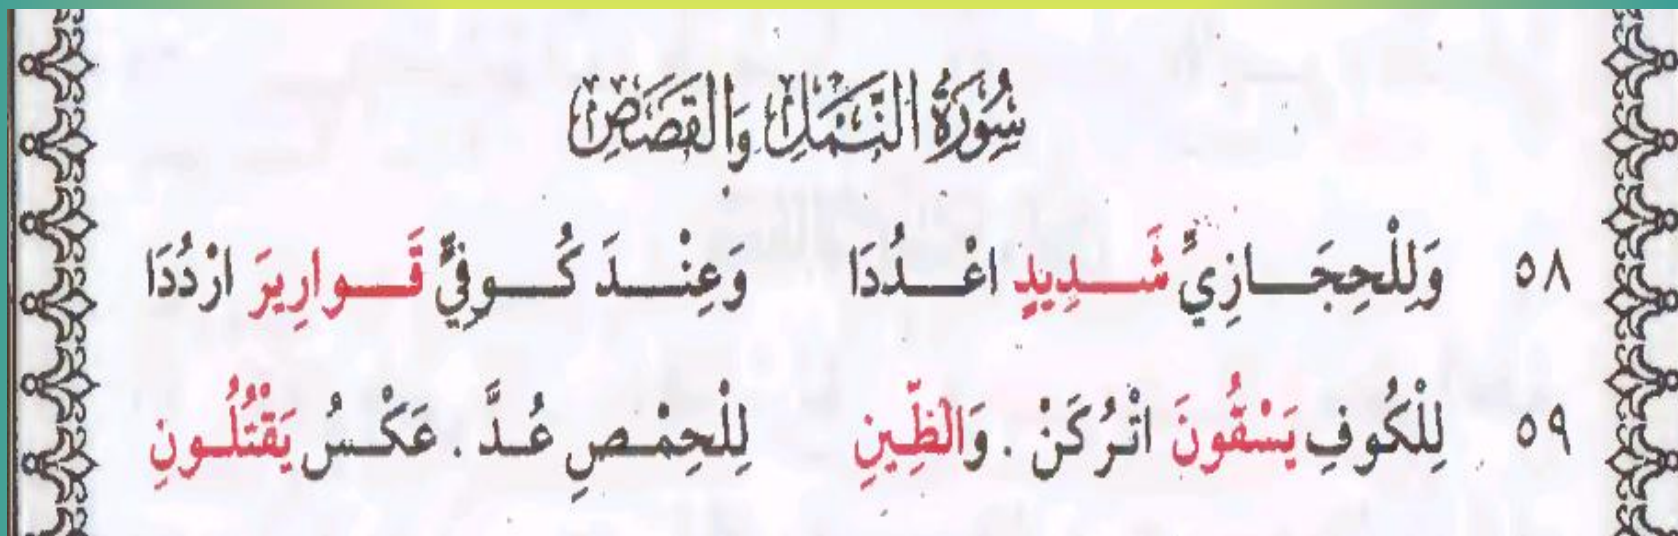 سُورَةُ النَّمْلِ وَالْقَصَصِ
٥٨ وَلِلْحِجَازِيِّ شَدِيدٍ اعْدُدَا وَعِنْدَ كُوفِيٍّ قَوارِيرَ ارْدُدَا
٥٩ لِلْكُوفِ يَسْقُونَ اتْرُكَنْ . وَالظِّينِ لِلْحِمْصِ عُدَّ . عَكْسُ يَقْتُلُونِ